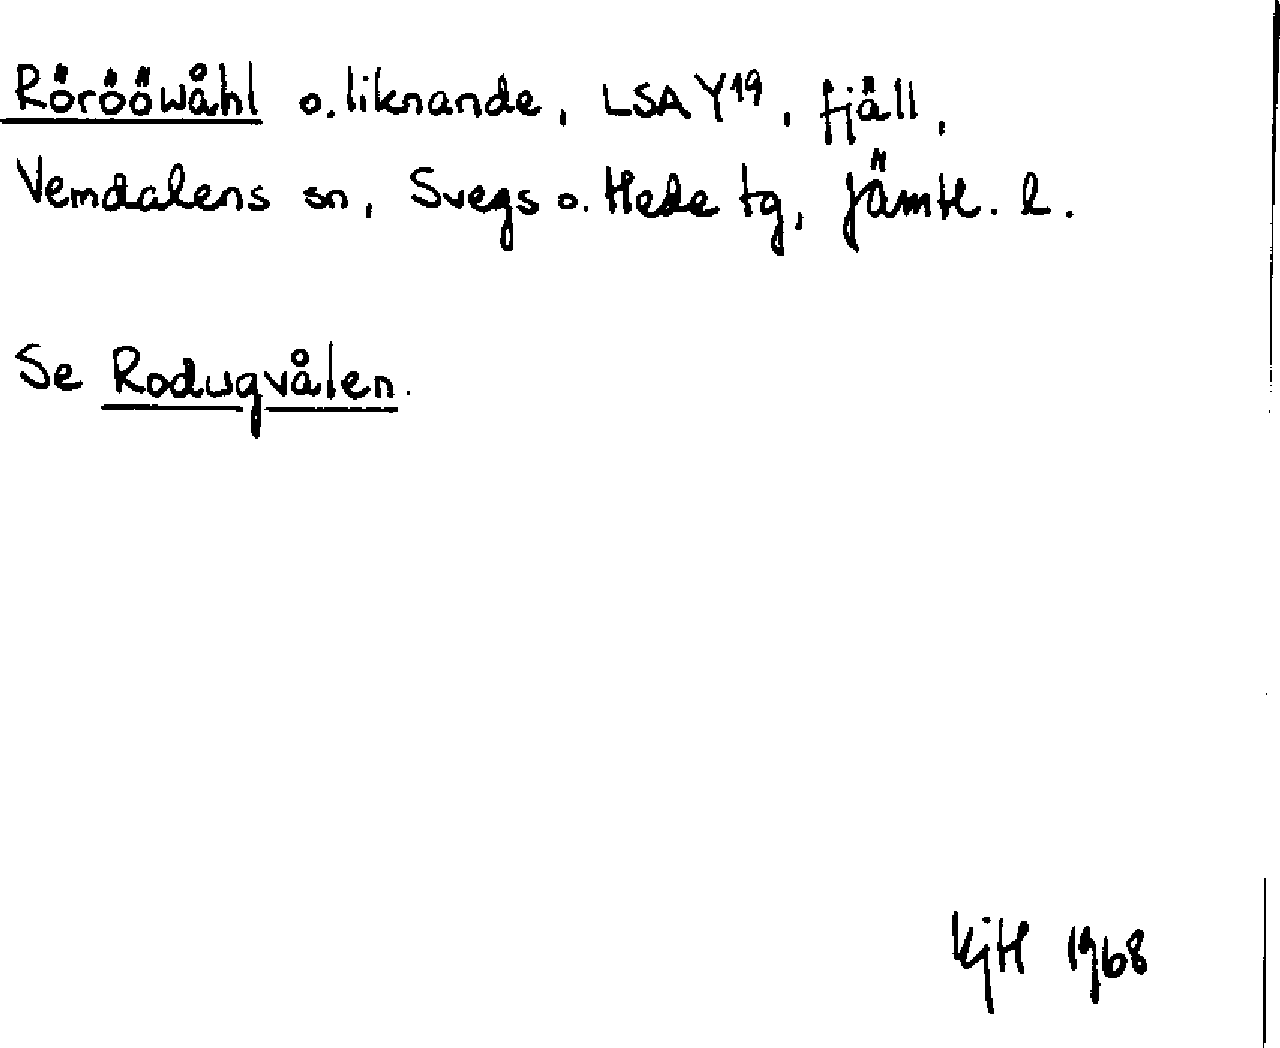 Röröówåhl o. liknande, LSA Y19, fjäll,
Vemdalens sn, Svegs o. Hede tg, Jämtl. l.
Se Rodugvålen.
KjH 1968